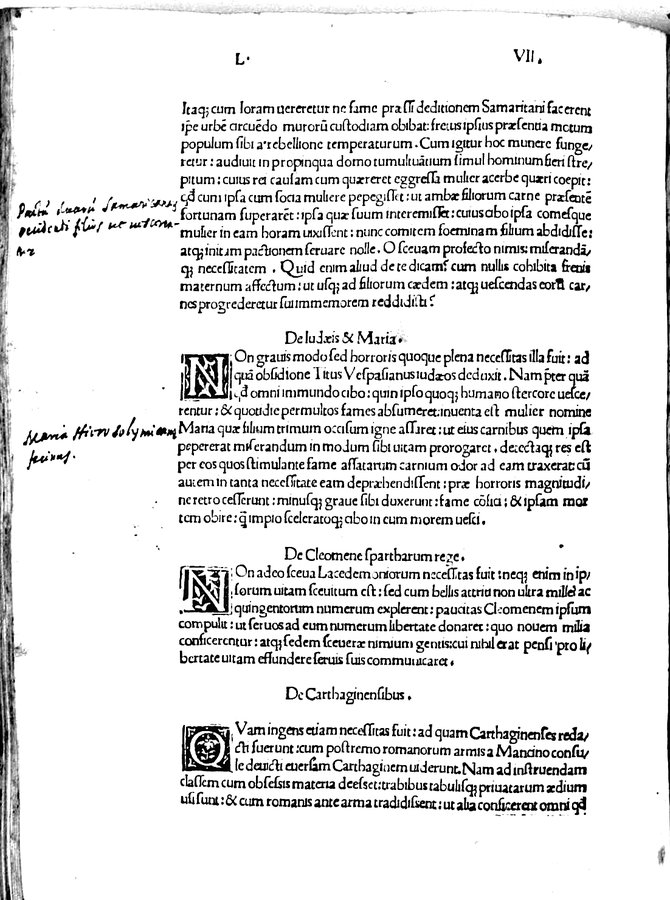 L. VII.
Itaq; cum Ioram uereretur ne fame præssi deditionem Samaritani facerent
ip̄e urbē circuēdo murorū custodiam obibat: fretus ipsius præsentia metum
populum sibi a rebellione temperaturum. Cum igitur hoc munere funge,
retur: audiuit in propinqua domo tumultuātium simul hominum fieri stre,
pitum: cuius rei causam cum quæreret eggressa mulier acerbe quæri coepit:
qđ cum ipsa cum socia muliere pepegisset: ut ambæ filiorum carne præsentē
fortunam superarēt: ipsa quæ suum interemisset: cuius abo ipsa comesque
mulier in eam horam uixissent: nunc comitem foeminam filium abdidisse:
atq; initam pactionem seruare nolle. O sceuam profecto nimis: miserandā,
q; necessitatem. Quid enim aliud de te dicam? cum nullis cohibita frenis
maternum affectum: ut usq; ad filiorum cædem: atq; uescendas eorū car,
nes progrederetur sui immemorem reddidisti?
filius
De Iudæis & Maria.
NOn grauis modo sed horroris quoque plena necessitas illa fuit: ad
quā obsidione Titus Vespasianus iudæos deduxit. Nam p̄ter quā
qđ omni immundo cibo: quin ipso quoq; humano stercore uesce,
rentur: & quotidie permultos fames absumeret: inuenta est mulier nomine
Maria quæ filium trimum occisum igne assaret: ut eius carnibus quem ipsa
pepererat miserandum in modum sibi uitam prorogaret. detectaq; res est
per eos quos stimulante fame assatarum carnium odor ad eam traxerat: cū
autem in tanta necessitate eam depræhendissent: præ horroris magnitudi,
ne retro cesserunt: minusq; graue sibi duxerunt: fame cōfici: & ipsam mor
tem obire: q̄ impio sceleratoq; cibo in eum morem uesci.
Maria Hierosolymitana
De Cleomene spartharum rege.
NOn adeo sceua Lacedemoniorum necessitas fuit: neq; enim in ip,
sorum uitam sceuitum est: sed cum bellis attriti non ultra mille ac
quingentorum numerum explerent: paucitas Cleomenem ipsum
compulit: ut seruos ad eum numerum libertate donaret: quo nouem milia
conficerentur: atq; sedem sceueræ nimium gentis: cui nihil erat pensi pro li,
bertate uitam effundere seruis suis communicaret.
De Carthaginensibus.
QVam ingens etiam necessitas fuit: ad quam Carthaginenses reda,
cti fuerunt: cum postremo romanorum armis a Mancino consu,
le deuicti euersam Carthaginem uiderunt. Nam ad instruendam
classem cum obsessis materia deesset: trabibus tabulisq; priuatarum ædium
usi sunt: & cum romanis ante arma tradidissent: ut alia conficerent omni qđ